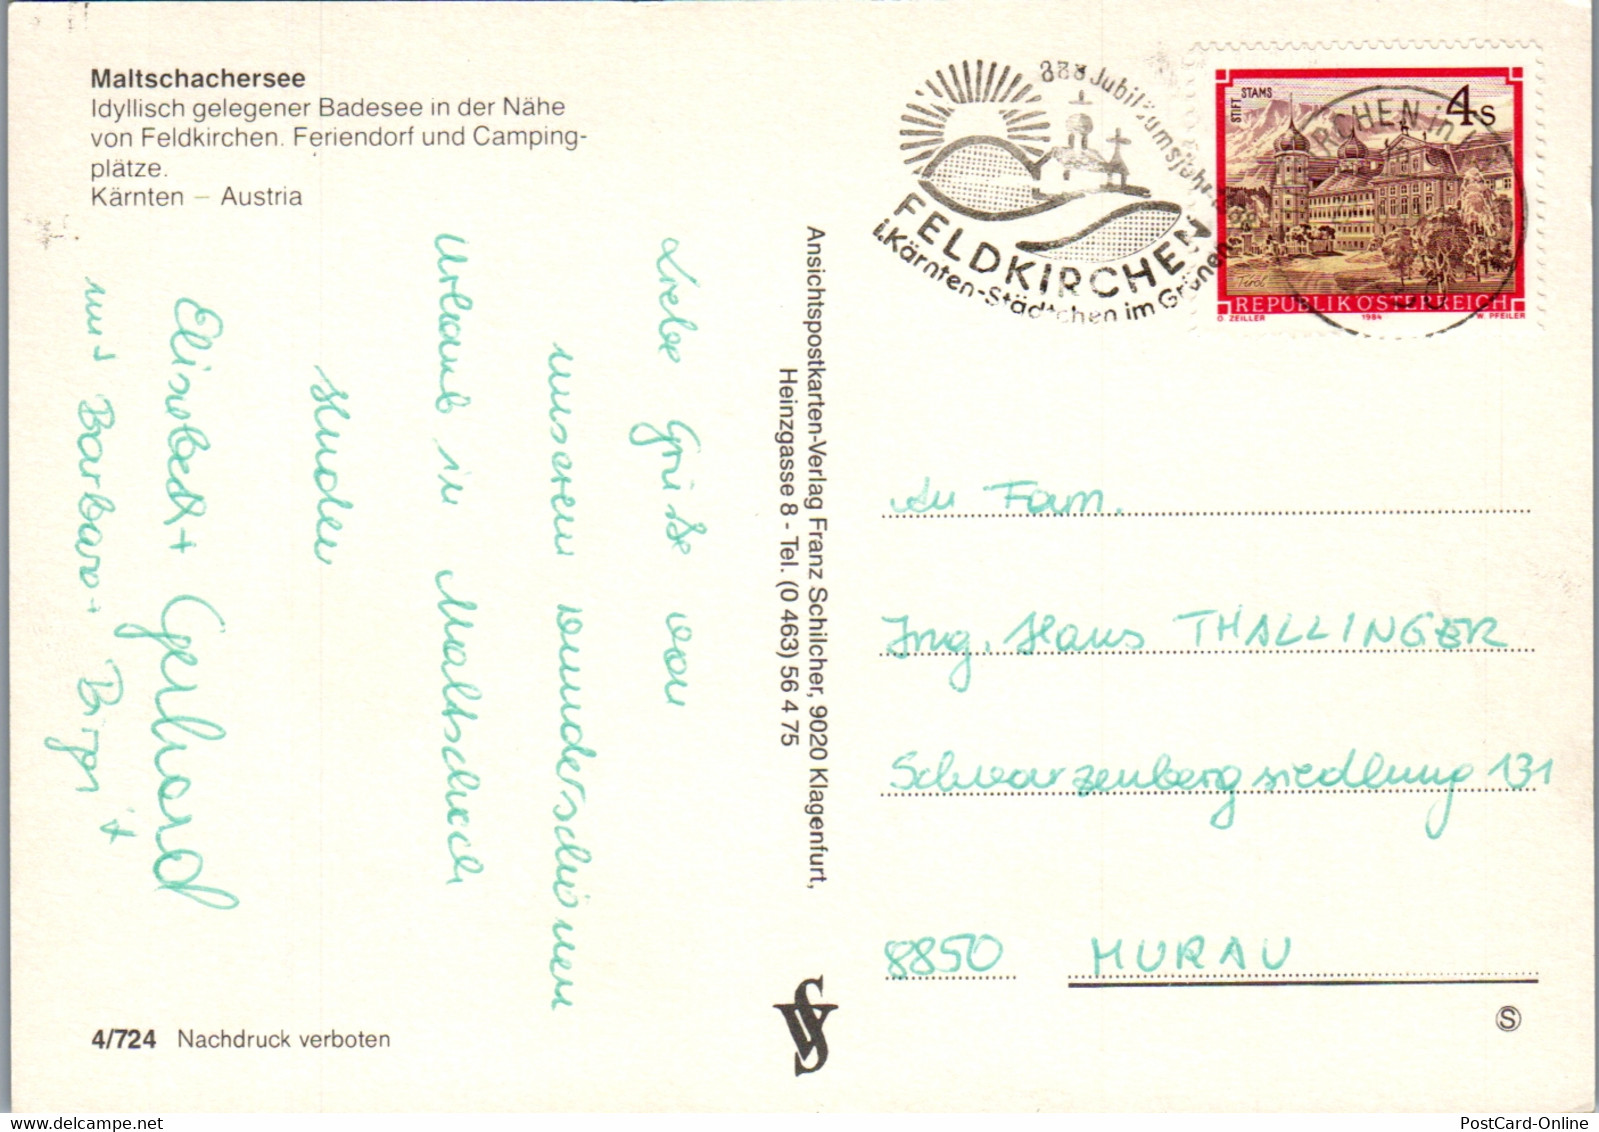 Maltschachersee
Idyllisch gelegener Badesee in der Nähe
von Feldkirchen. Feriendorf und Camping-
plätze.
Kärnten – Austria
Liebe Grüße von
unserem wunderschönen
Urlaub in Maltschach
Elisabeth +
Gerhard
mit Barbara + Birgit
4/724 Nachdruck verboten
Ansichtspostkarten-Verlag Franz Schilcher, 9020 Klagenfurt,
Heinzgasse 8 - Tel. (0 463) 56 4 75
888 Jubiläumsjahr
FELDKIRCHEN
i.Kärnten-Städtchen im Grünen
RCHEN in
STIFT STAMS
4 S
Tirol
REPUBLIK ÖSTERREICH
O. ZEILLER 1984 W. PFEILER
An Fam.
Ing. Hans THALLINGER
Schwarzenbergsiedlung 131
8850 MURAU
VS
S
PostCard-Online